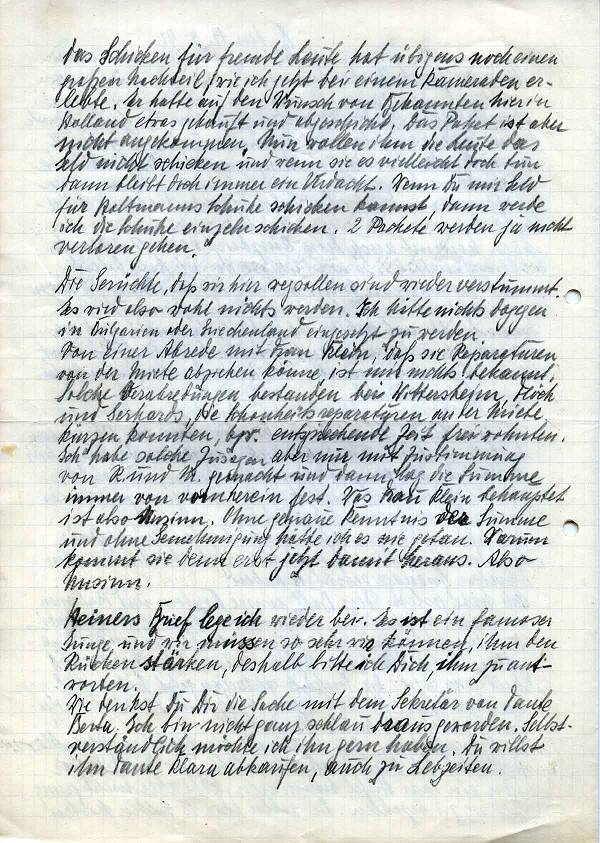 Das Schicken für fremde Leute hat übrigens noch einen
großen Nachteil, wie ich jetzt bei einem Kameraden er-
lebte. Er hatte auf den Wunsch von Bekannten hier in
Holland etwas gekauft und abgeschickt. Das Paket ist aber
nicht angekommen. Nun wollen ihm die Leute das
Geld nicht schicken und wenn sie es vielleicht doch tun
dann bleibt doch immer ein Verdacht. Wenn Du mir Geld
für Schuhe schicken kannst, dann werde
ich die Schuhe einzeln schicken. 2 Pakete werden ja nicht
verloren gehen.
Die Gerüchte, daß wir hier wegsollen sind wieder verstummt.
Es wird also wohl nichts werden. Ich hätte nichts dagegen
in Bulgarien oder Griechenland eingesetzt zu werden.
Von einer Abrede mit Frau Klein, daß sie Reparaturen
von der Miete abziehen könne, ist mir nichts bekannt.
Solche Verabredungen bestanden bei Wittersheim,
und Gerhards, die Schönheitsreparaturen an der Miete
kürzen konnten, bzw. entsprechende Zeit frei wohnten.
Ich habe solche Zusagen aber nur mit Zustimmung
von R. und M. gemacht und dann lag die Summe
immer von vornherein fest. Was Frau Klein behauptet
ist also Unsinn. Ohne genaue Kenntnis der Summe
und ohne Genehmigung hätte ich es nie getan. Warum
kommt sie denn erst jetzt damit heraus. Also
Unsinn.
Heiners Brief lege ich wieder bei. Es ist ein famoser
Junge, und wir müssen so sehr wir können, ihm den
Rücken stärken, deshalb bitte ich Dich, ihm zu ant-
worten.
Wie denkst Du Dir die Sache mit dem Sekretär von Tante
Berta. Ich bin nicht ganz schlau daraus geworden. Selbst-
verständlich möchte ich ihn gern haben. Du willst
ihn Tante Klara abkaufen, auch zu Lebzeiten.